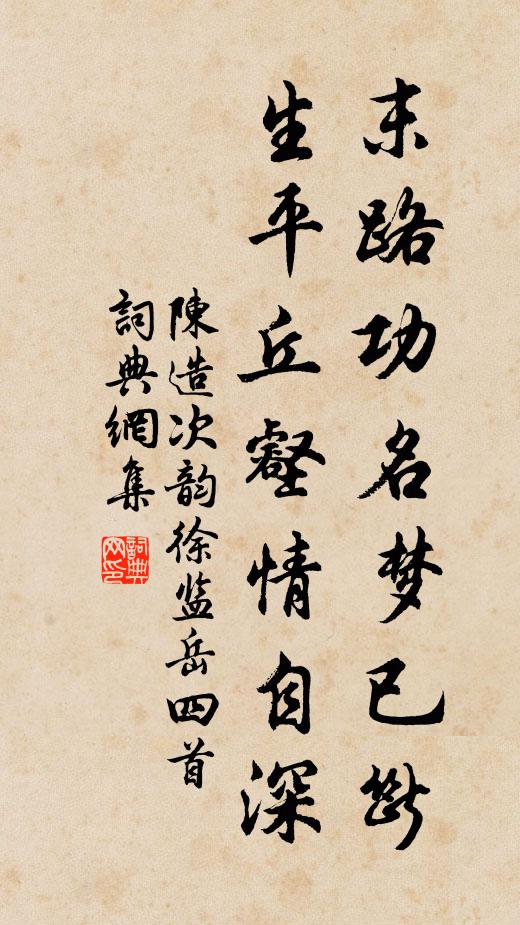 末路功名梦已断
生平丘壑情自深
陳造次韵徐监岳四首
詞典網集
詞典网印